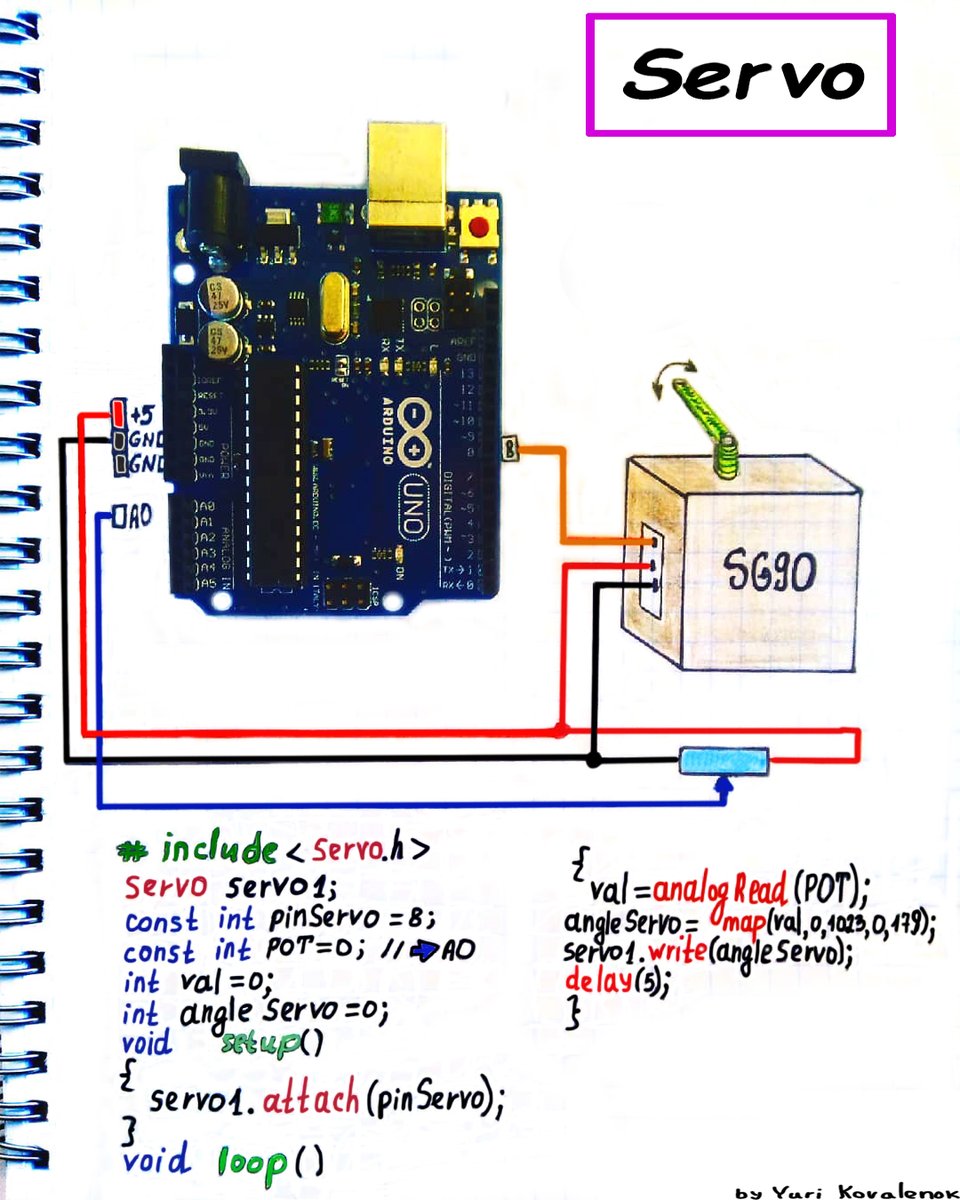 Servo
CS
47
25V
CS
47
25V
RX
TX
L
AREF
GND
13
12
~11
~10
~9
8
7
~6
~5
4
~3
2
TX→1
RX←0
DIGITAL (PWM ~)
ARDUINO
UNO
ON
ICSP
IOREF
RESET
3.3V
5V
GND
GND
Vin
POWER
A0
A1
A2
A3
A4
A5
ANALOG IN
+5
GND
GND
A0
8
SG90
# include < Servo.h >
Servo servo1;
const int pinServo = 8;
const int POT=0; // ➔ A0
int val =0;
int angle Servo =0;
void setup()
{
servo1. attach (pinServo);
}
void loop ()
{
val = analog Read (POT);
angle Servo = map(val, 0, 1023, 0, 179);
servo1. write (angle Servo);
delay (5);
}
by Yuri Kovalenok